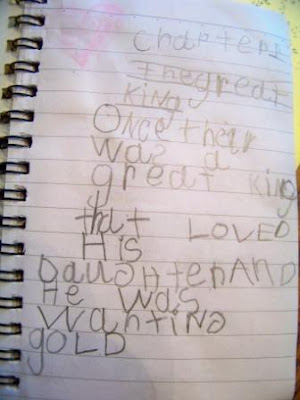 Chapter 1
The great
King
Once their
was a
great King
that LOVED
HIS
DaUGHteRAND
He was
wantinG
gOLD